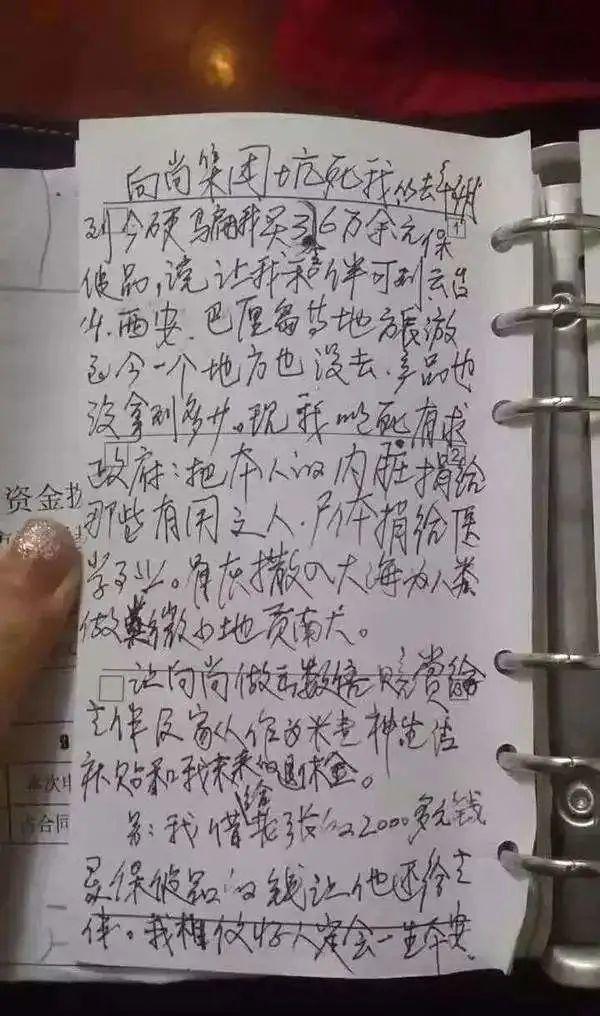 向尚集团坑死我从去年
到今硬骗我买了6万余元保
健品,说让我和老伴可到云台
山、西安、巴厘岛等地方旅游
至今一个地方也没去、产品也
没拿到多少。现我以死有求
政府:把本人的内脏捐给
那些有用之人、尸体捐给医
学事业。骨灰撒入大海为人类
做微小地贡献。
让向尚做天数赔赏给
老伴及家人作为 精神生活
补贴和我未来的退休金。
另:我借给 张 的2000多元钱
是保健品的钱让他还给老
伴。我相信好人定会一生平安
资金
本次
合同
9